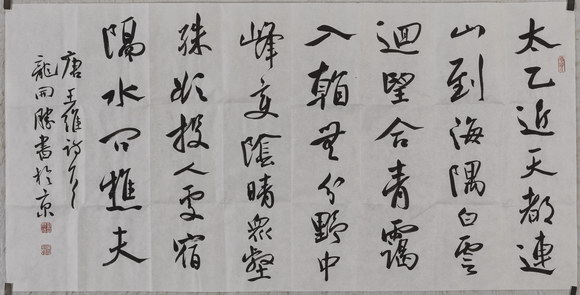 太乙近天都連
山到海隅白雲
迴望合青靄
入看無分野中
峰变陰晴衆壑
殊欲投人處宿
隔水问樵夫
唐王維詩一首
龍勝書於京